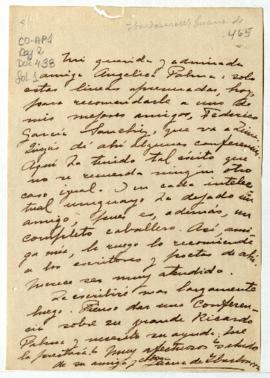 Ibarbourou, Juana de
465
CO-AP1
Caj 2
Doc 438
Fol. 1
Mi querida y admirada
amiga Angélica Palma: solo
estas líneas apresuradas, hoy,
para recomendarle a uno de
mis mejores amigos, Federico
García Sanchiz, que va a Lima
a dar ahí algunas conferencias.
Aquí ha tenido tal éxito que
no se recuerda ningún otro
caso igual. En cada intelec-
tual uruguayo ha dejado un
amigo, pues es, además, un
completo caballero. Así, ami-
ga mía, le ruego lo recomiende
a los escritores y poetas de ahí.
Merece ser muy atendido.
Le escribiré más largamente
luego. Pienso dar una Conferen-
cia sobre su grande Ricardo
Palma y necesito su ayuda. Que
la prestará. Muy afectuoso saludo
de su amiga Juana de Ibarbourou